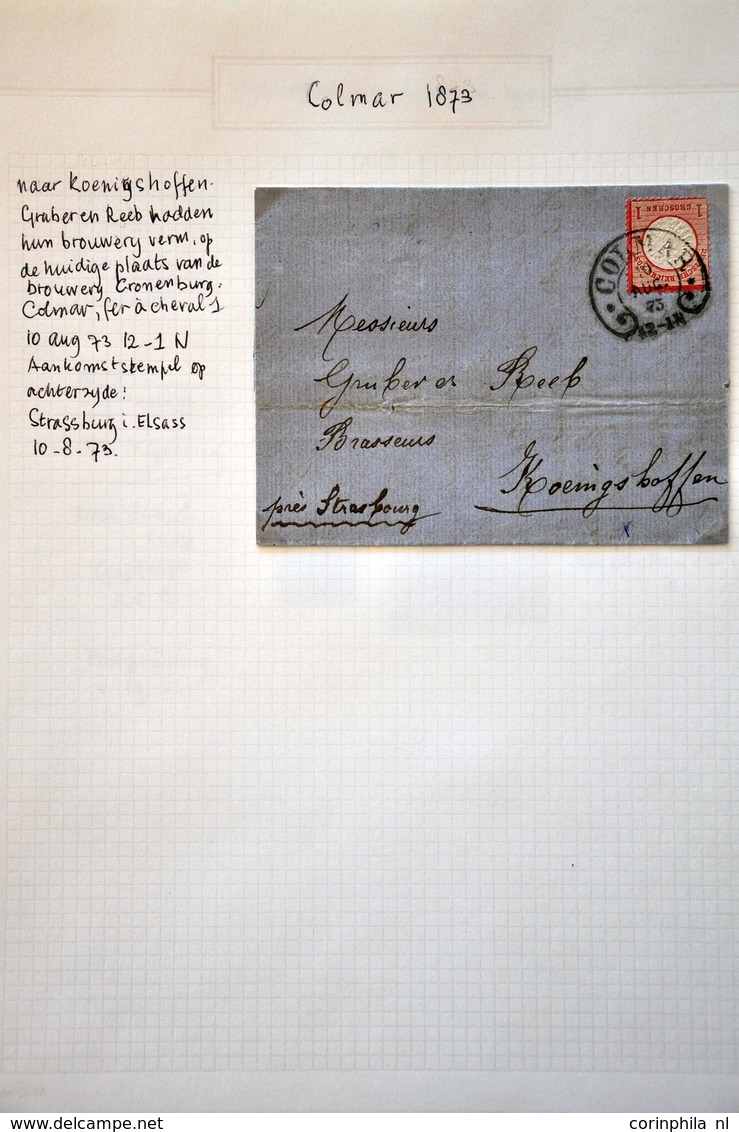 Colmar 1873
naar Koenigshoffen.
Gruber en Reeb hadden
hun brouwery verm. op
de huidige plaats van de
brouwery Cronenburg.
Colmar, fer à cheval 1
10 aug 73 12-1 N
Aankomststempel op
achterzyde:
Strassburg i. Elsass
10-8-73.
1 GROSCHEN 1
COLMAR
AUG.
73
12-1N
Messieurs
Gruber et Reeb
Brasseurs
Koenigshoffen
près Strasbourg
corinphila nl